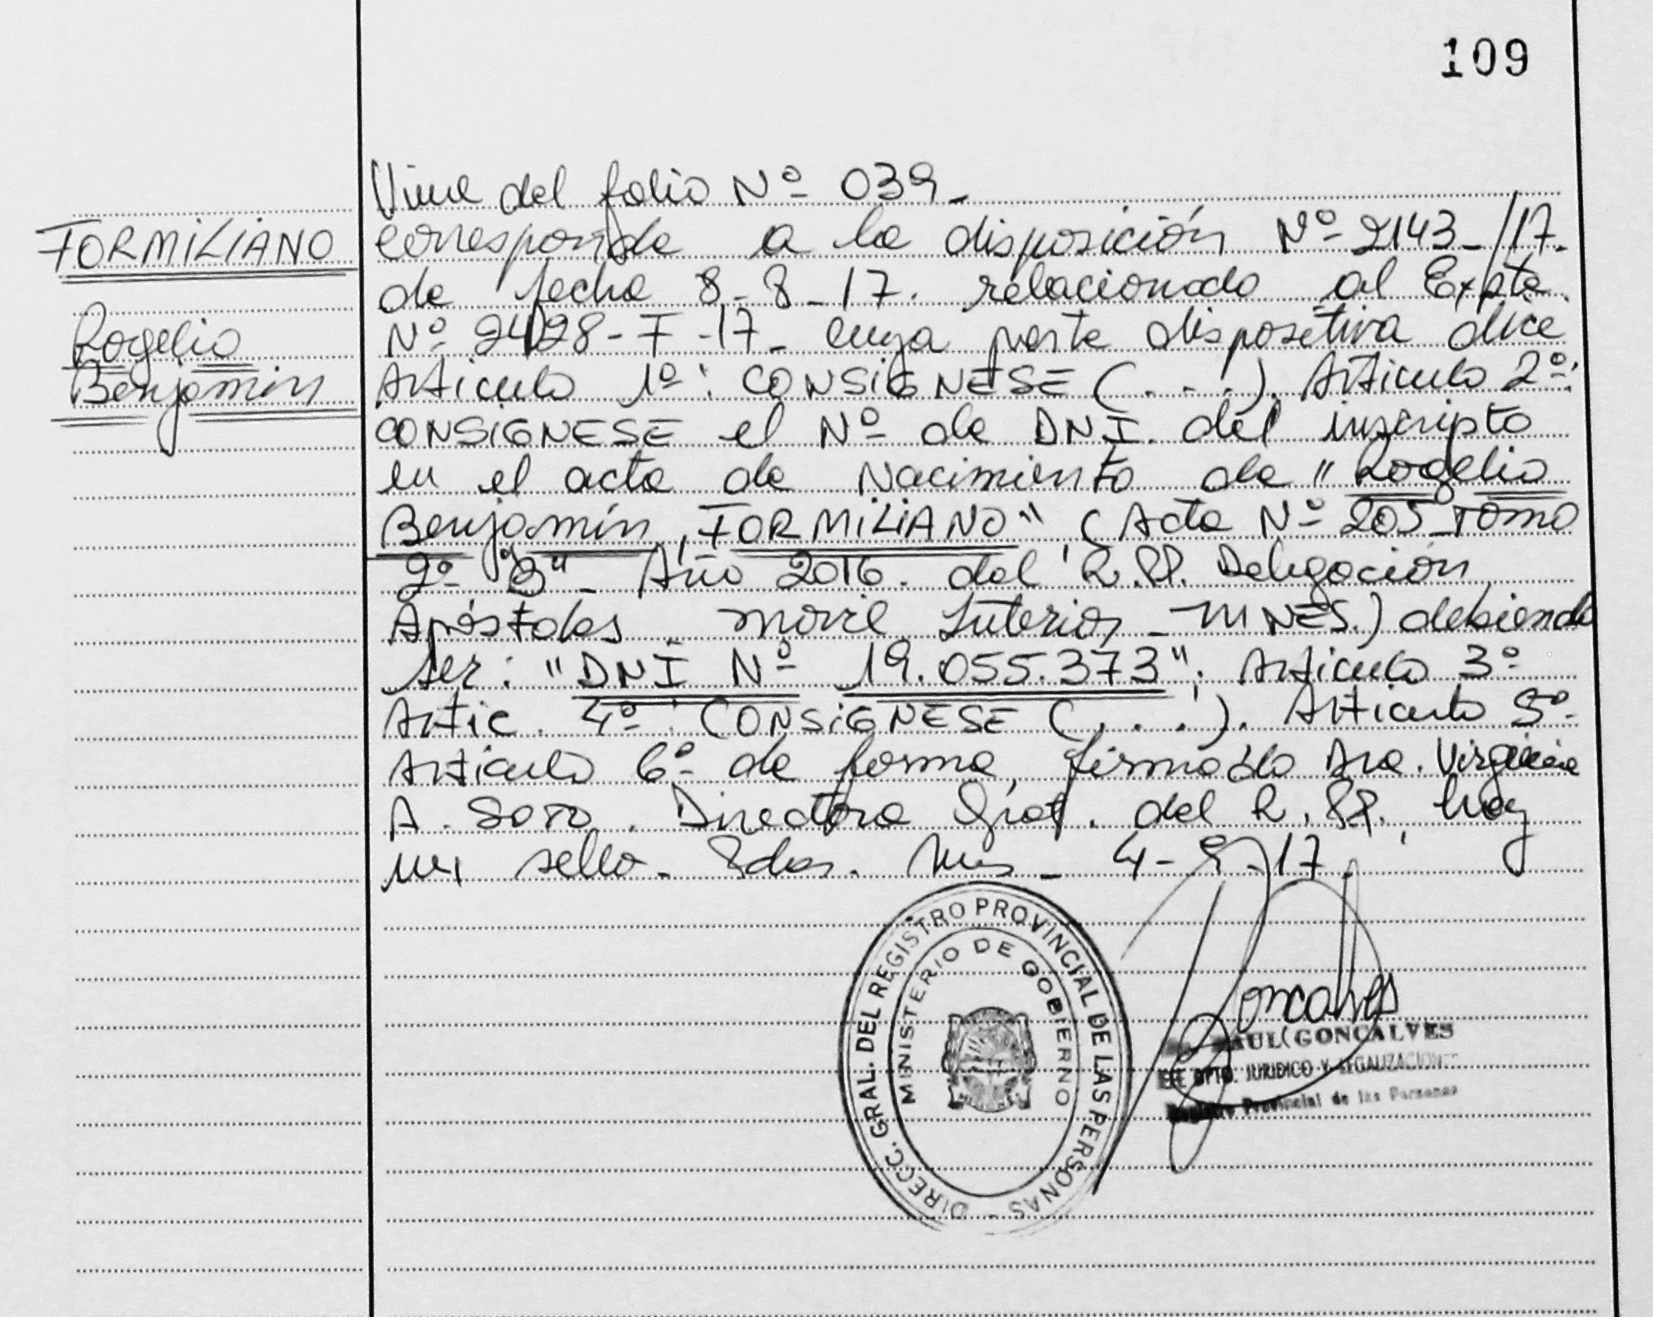 109
Viene del folio Nº 039-
FORMILIANO
corresponde a la disposición Nº 2143-/17.
de fecha 8-8-17. relacionado al Expte.
Rogelio
Nº 2428-F-17- cuya parte dispositiva dice
Benjamín
Articulo 1º: CONSIGNESE (...). Articulo 2º:
CONSIGNESE el Nº de DNI. del inscripto
en el acta de Nacimiento de "Rogelio
Benjamín, FORMILIANO" (Acta Nº 205 Tomo
2º "B"- Año 2016. del R.PP. Delegación
Apóstoles. Movil Interior - MNES.) debiendo
ser: "DNI Nº 19.055.373". Articulo 3º-
Artic. 4º: CONSIGNESE (...). Articulo 5º-
Articulo 6º- de forma, firmado Dra. Virginia
A. SOTO. Directora Gral. del R.PP. hay
un sello. Pdas. Mnes- 4-9-17
DIRECC. GRAL. DEL REGISTRO PROVINCIAL DE LAS PERSONAS -
MINISTERIO DE GOBIERNO
Goncalves
RAUL GONCALVES
DPTO. JURIDICO Y LEGALIZACIONES
Registro Provincial de las Personas